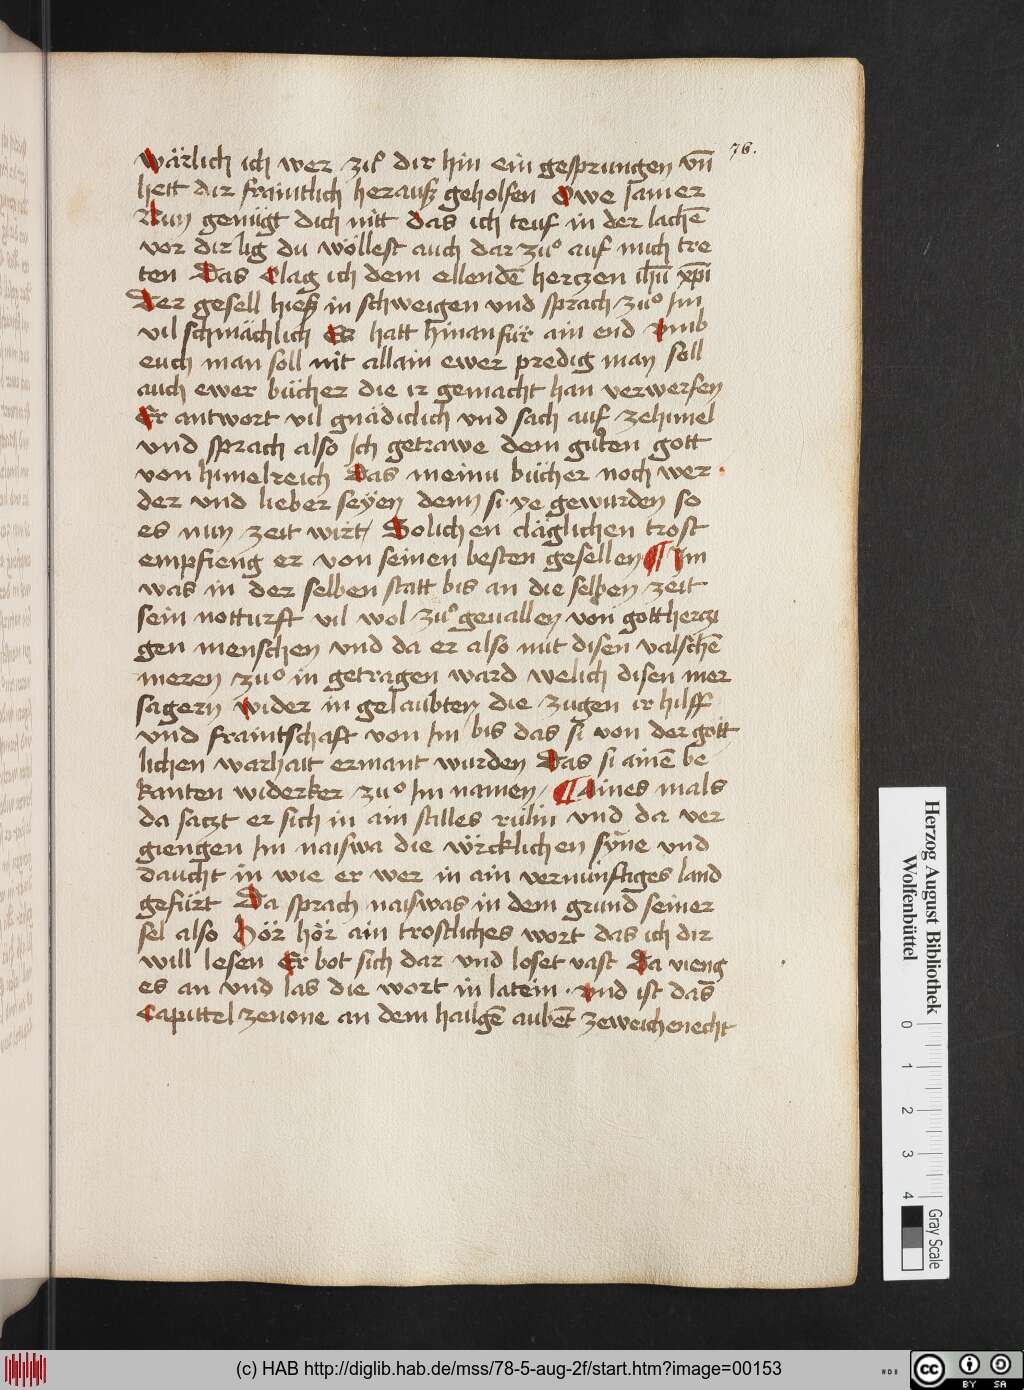 76.
wärlich ich wer zuͦ dir hin ein gesprungen vn̄
hett dir fraintlich herausz geholfen Owe Jamer
Nun genügt dich nitt das ich teuf in der lachē
vor dir lig du wöllest auch dar zuͦ auf mich tre
ten Das Clag ich dem ellendē herczen ihū xpī
Der gesell hiesz in schweigen vnd sprach zuͦ Im
vil schmächlich Es hatt hinanfür ain end vmb
euch man soll nit allain ewer predig man soll
auch ewer bücher die ir gemacht han verwerfen
Er antwort vil gnädiclich vnd sach auf ze himel
vnd sprach also Ich getrawe dem guͦten gott
von himelreich Das meinu bücher noch wer
der vnd lieber seÿen denn si ye gewurden so
es nun zeit wirt / Solichen cläglichen trost
empfieng er von seinen besten gesellen ¶ Im
was in der selben statt bis an die selben zeit
sein notturft vil wol zuͦ geuallen von gottherczi
gen menschen vnd da er also mit disen valschē
meren zuͦ in getragen ward welich disen mer
sagern wider in gelaubten die zugen ir hilff
vnd fraintschaft von Im bis das si von der gött
lichen warhait ermant wurden Das si ainē be
kanten widerker zuͦ Im namen / ¶ Aines mals
da saczt er sich in ain stilles rülin vnd da ver
giengen Im naiswa die wÿrcklichen sÿne vnd
daucht in wie er wer in ain vernünftiges land
gefürt Da sprach naiswas in dem grund seiner
sel also Hör hör ain trostliches wort das ich dir
will lesen Er bot sich dar vnd loset vast Da vieng
es an vnd las die wort in latein · vnd ist das
Capittel ze none an dem hailgē aubēt ze weichenecht
Herzog August Bibliothek
Wolfenbüttel
0 1 2 3 4
Gray Scale
(c) HAB http://diglib.hab.de/mss/78-5-aug-2f/start.htm?image=00153
WDB
cc BY SA